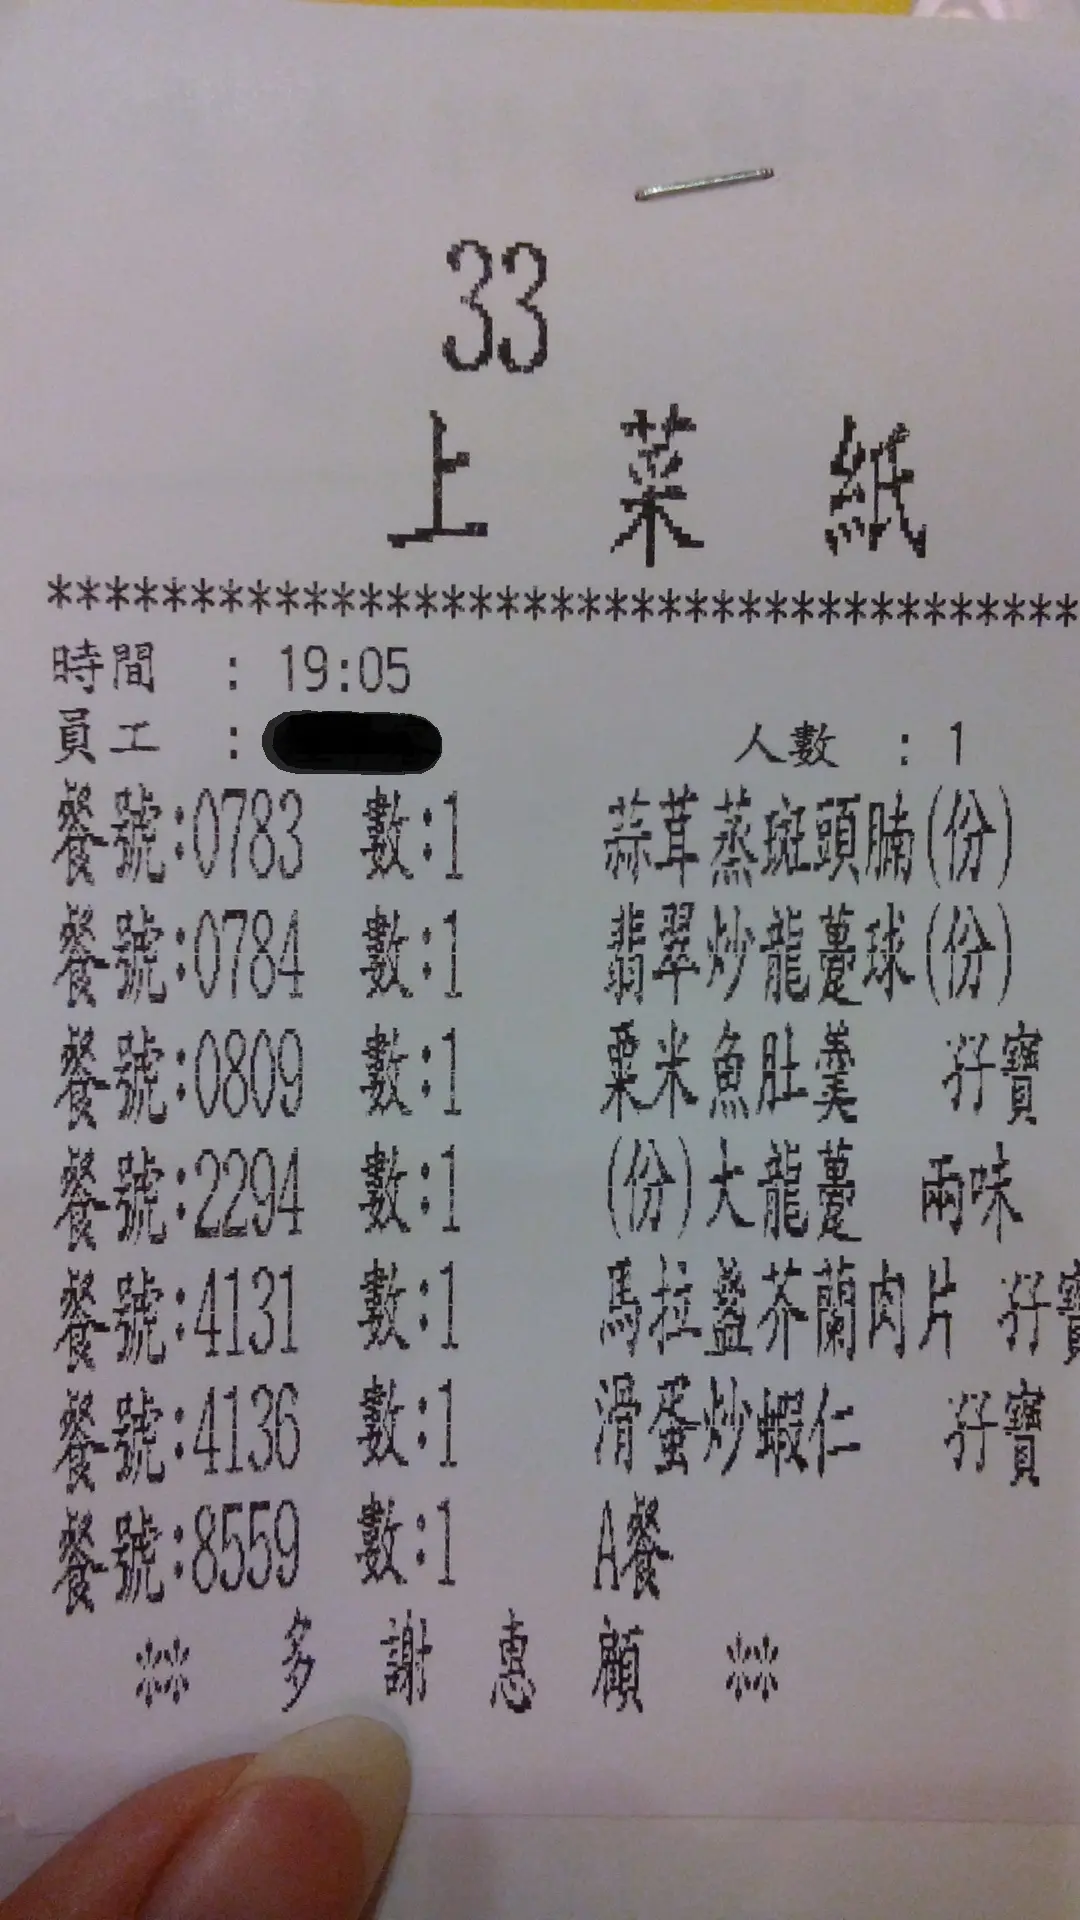 33
上 菜 紙
*************************************
時間 : 19:05
員工 : 人數 : 1
餐號:0783 數:1 蒜茸蒸斑頭腩(份)
餐號:0784 數:1 翡翠炒龍躉球(份)
餐號:0809 數:1 粟米魚肚羹 孖寶
餐號:2294 數:1 (份)大龍躉 兩味
餐號:4131 數:1 馬拉盞芥蘭肉片 孖寶
餐號:4136 數:1 滑蛋炒蝦仁 孖寶
餐號:8559 數:1 A餐
** 多 謝 惠 顧 **